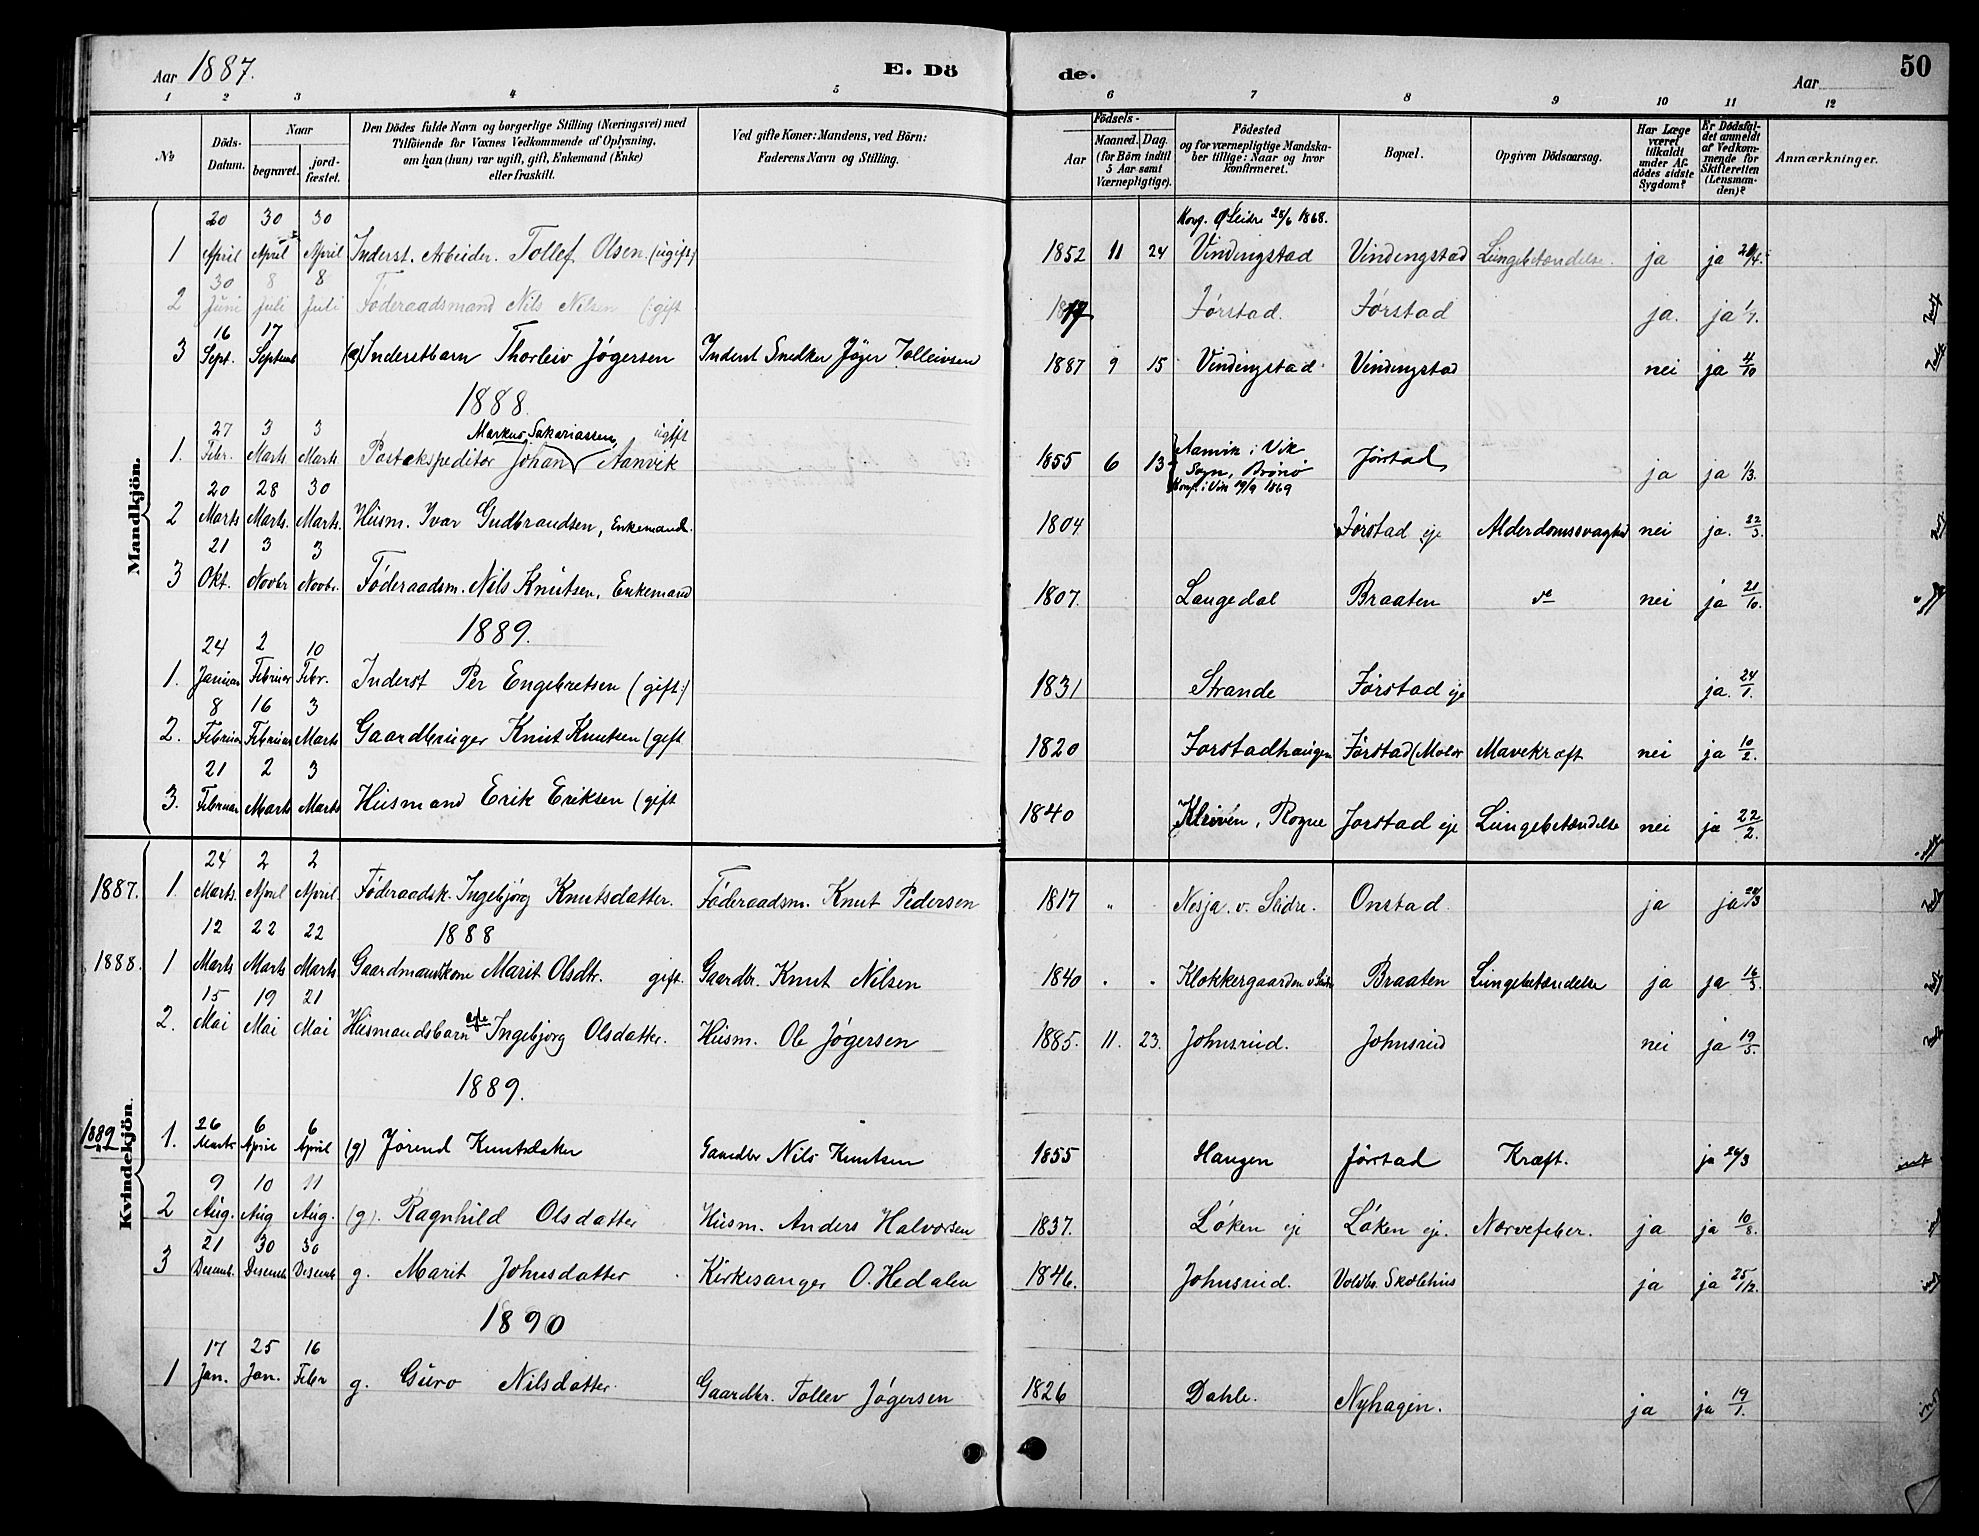 Aar 1887. E. Dö de. Aar 50
1 2 3 4 5 6 7 8 9 10 11 12
No Döds-Datum. Naar begravet. jordfæstet. Den Dödes fulde Navn og borgerlige Stilling (Næringsvei) med Tilföiende for Voxnes Vedkommende af Oplysning, om han (hun) var ugift, gift, Enkemand (Enke) eller fraskilt. Ved gifte Koner: Mandens, ved Börn: Faderens Navn og Stilling. Födsels- Aar Maaned. Dag. (for Börn indtil 5 Aar samt Værnepligtige). Födested og for værnepligtige Mandskaber tillige: Naar og hvor konfirmeret. Bopæl. Opgiven Dödsaarsag. Har Læge været tilkaldt under Afdödes sidste Sygdom? Er Dödsfaldet anmeldt af Vedkommende for Skifteretten (Lensmanden)? Anmærkninger.
Mandkjön.
1 20 April 30 April 30 April Inderst. Arbeider. Tollef Olsen. (ugift) 1852 11 24 Konf. Ø Slidre 28/6 1868. Vindingstad Vindingstad Lungebetændelse. ja ja 21/4.
2 30 Juni 8 Juli 8 Juli Föderaadsmand Nils Nilsen (: gift Jørstad. Jørstad ja. ja 1/7.
3 16 Sept. 17 Septemb Inderstbarn Thorleiv Jøgersen Inderst Snedker Jøger Tolleivsen 1887 9 15 Vindingstad Vindingstad nei ja 4/10
1888.
1. 27 Febr. 3 Marts 3 Marts Postekspeditør Johan Markus Sakariassen Aanvik ugift 1855 6 13 Aanvik i Vik Sogn, Brönö Konf. i Vik 19/9 1869 Jørstad ja ja 1/3.
2 20 Marts 28 Marts. 30 Marts. Husm. Ivar Gudbrandsen, Enkemand. 1804 Jørstad eje Alderdomssvaghed nei ja. 22/3.
3 21 Okt. 3 Novbr 3 Novbr. Föderaadsm. Nils Knutsen, Enkemand 1807. Langedal Braaten do nei ja 21/10.
1889.
1. 24 Januar 2 Februar 10 Febr. Inderst Per Engebretsen (gift:) 1831 Strande Jørstad eje ja. 24/1.
2. 8 Februar 16 Februar 3 Marts Gaardbruger Knut Knutsen (gift 1820 Jorstadhaugen Jørstad (Moløs Mavekræft nei ja 10/2.
3. 21 Februar 2 Marts 3 Marts Husmand Erik Eriksen (gift 1840 Kliven, Rogne Jorstad eje Lungebetændelse nei ja 22/2.
Kvindekjön.
1887. 1. 24 Marts. 2 April 2 April. Föderaadsk. Ingebjørg Knutsdatter. Föderaadsm. Knut Pedersen 1817 Nesja. v. Slidre. Onstad. ja ja 28/3
1888
1888. 1 12 Marts 22 Marts 22 Marts Gaardmandskone Marit Olsdtr. gift. Gaardbr. Knut Nilsen 1840 Klokkergaarden v Slidre Braaten Lungebetændelse ja ja 16/3.
2. 15 Mai 19 Mai 21 Mai Husmandsbarn ægte Ingebjørg Olsdatter. Husm. Ole Jøgersen 1885. 11. 23. Johnsrud. Johnsrud nei ja 19/5.
1889.
1889 1. 26 Marts 6 April 6 April (g) Jørend Knutsdatter Gaardbr Nils Knutsen 1855 Haugen Jørstad Kræft. ja 26/3
2 9 Aug. 10 Aug 11 Aug. (g). Ragnhild Olsdatter Husm. Anders Halvorsen 1837. Løken eje Løken eje. Nervefeber. ja ja 10/8.
3 21 Desemb. 30 Desemb 30 Desemb g. Marit Johnsdatter Kirkesanger O. Hedalen 1846. Johnsrud. Voldbr. Skolehus ja ja 25/12.
1890
1 17 Jan. 25 Jan. 16 Febr g. Guro Nilsdatter. Gaardbr. Tollev Jøgersen 1826 Dahle. Nyhagen. ja ja 19/1.